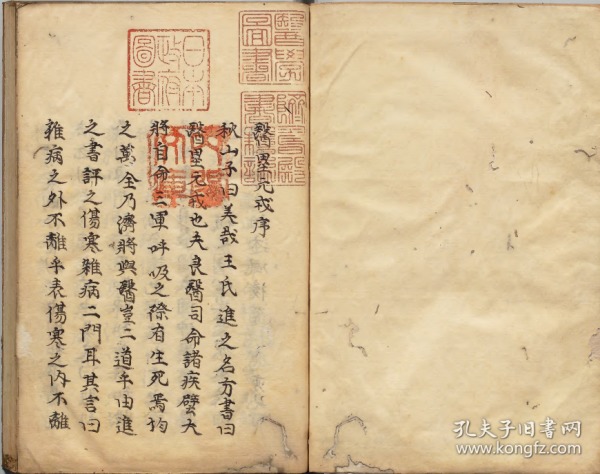 醫壘元戎序
秋山子曰美哉王氏進之名方書曰
醫壘元戎也夫良醫司命諸疾譬大
將自命三軍呼吸之際有生死焉均
之萬全乃濟將與醫豈二道乎由進
之書評之傷寒雜病二門耳其言曰
雜病之外不離乎表傷寒之內不離
日本
政府
圖書
孔夫子旧书网
www.kongfz.com